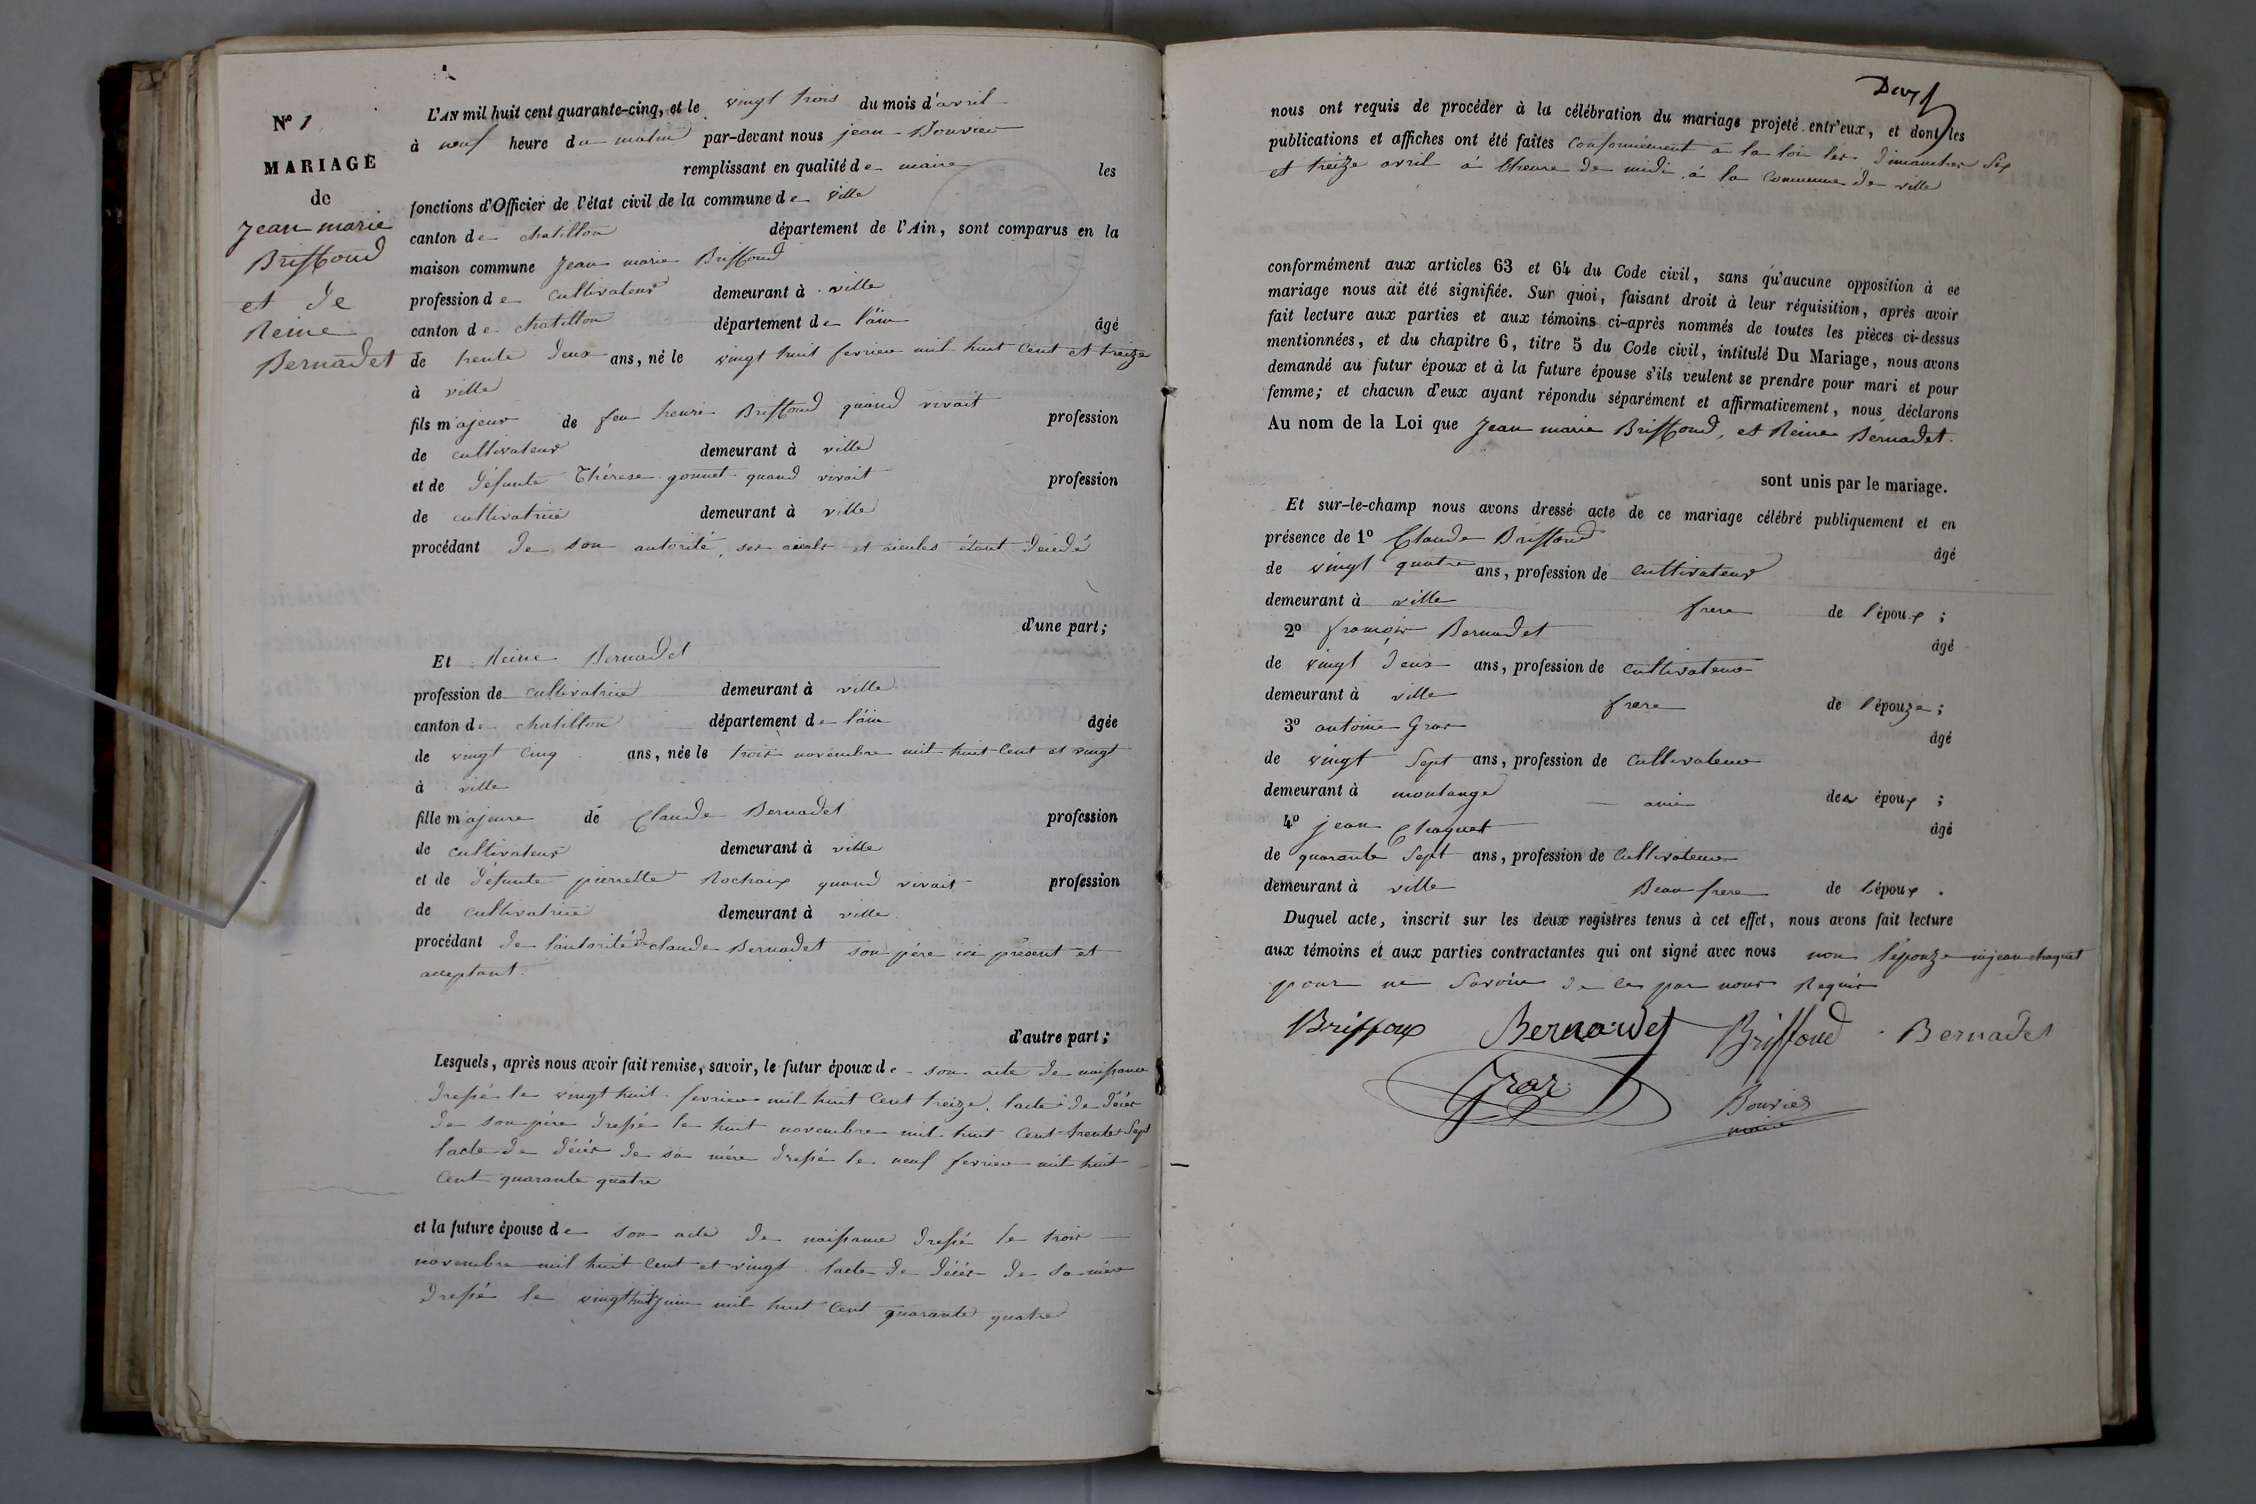 N° 1
MARIAGE
de
Jean marie
Briffoud
et de
Reine
Bernadet
L'AN mil huit cent quarante-cinq, et le vingt trois du mois d'avril
à neuf heure du matin par-devant nous jean Bouvier
remplissant en qualité de maire les
fonctions d'Officier de l'état civil de la commune de ville
canton de chatillon département de l'Ain, sont comparus en la
maison commune Jean marie Briffoud
profession de cultivateur demeurant à ville
canton de chatillon département de l'ain âgé
de trente deux ans, né le vingt huit fevrier mil huit cent et treize
à ville
fils majeur de feu henri Briffoud quand vivait profession
de cultivateur demeurant à ville
et de défunte Thérese gonnet quand vivait profession
de cultivatrice demeurant à ville
procédant de son autorité, ses aieuls et aieules étant décédé
d'une part;
Et Reine Bernadet
profession de cultivatrice demeurant à ville
canton de chatillon département de l'ain âgée
de vingt cinq ans, née le trois novembre mil huit cent et vingt
à ville
fille majeure de Claude Bernadet profession
de cultivateur demeurant à ville
et de défunte pierrette Rochaix quand vivait profession
de cultivatrice demeurant à ville
procédant de l'autorité de claude Bernadet son pére ici présent et
acceptant.
d'autre part;
Lesquels, après nous avoir fait remise, savoir, le futur époux de son acte de naissance
dressé le vingt huit fevrier mil huit cent treize, l'acte de décés
de son pére dressé le huit novembre mil huit cent trente sept
l'acte de décés de sa mére dressé le neuf fevrier mil huit
cent quarante quatre
et la future épouse de son acte de naissance dressé le trois
novembre mil huit cent et vingt l'acte de décés de sa mére
dressé le vingt huit juin mil huit cent quarante quatre
nous ont requis de procéder à la célébration du mariage projeté entr'eux, et dont les
publications et affiches ont été faites conformément a la loi les dimanches six
et treize avril a l'heure de midi a la commune de ville
conformément aux articles 63 et 64 du Code civil, sans qu'aucune opposition à ce
mariage nous ait été signifiée. Sur quoi, faisant droit à leur réquisition, après avoir
fait lecture aux parties et aux témoins ci-après nommés de toutes les pièces ci-dessus
mentionnées, et du chapitre 6, titre 5 du Code civil, intitulé Du Mariage, nous avons
demandé au futur époux et à la future épouse s'ils veulent se prendre pour mari et pour
femme; et chacun d'eux ayant répondu séparément et affirmativement, nous déclarons
Au nom de la Loi que Jean marie Briffoud, et Reine Bernadet.
sont unis par le mariage.
Et sur-le-champ nous avons dressé acte de ce mariage célébré publiquement et en
présence de 1° Claude Briffoud âgé
de vingt quatre ans, profession de cultivateur
demeurant à ville frere de l'époux;
2° françois Bernadet âgé
de vingt deux ans, profession de cultivateur
demeurant à ville frere de l'épouze;
3° antoine Gros âgé
de vingt sept ans, profession de cultivateur
demeurant à montange amie des époux;
4° jean Chaquet âgé
de quarante sept ans, profession de cultivateur
demeurant à ville Beau frere de l'époux.
Duquel acte, inscrit sur les deux registres tenus à cet effet, nous avons fait lecture
aux témoins et aux parties contractantes qui ont signé avec nous non l'épouze ni jean chaquet
pour ne savoir de ce par nous Requis
Briffoux Bernadet Briffoud Bernadet
Gros Bouvier
maire